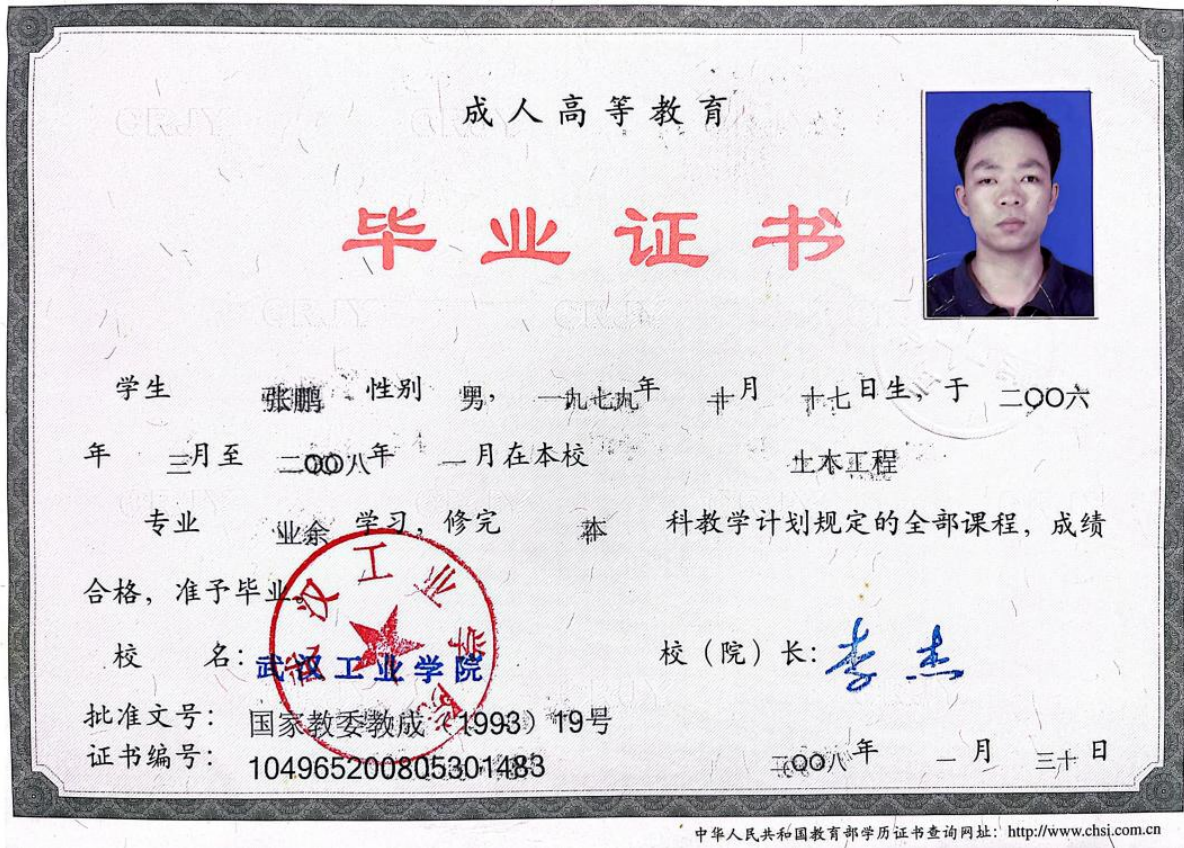 成人高等教育
毕业证书
学生 张鹏 性别 男，一九七九年 十月 十七日生，于 二〇〇六
年 三月至 二〇〇八年 一月在本校 土木工程
专业 业余 学习，修完 本 科教学计划规定的全部课程，成绩
合格，准予毕业。
校 名：武汉工业学院
武汉工业学院
校（院）长：李杰
批准文号：国家教委教成（1993）19号
证书编号：104965200805301483
二〇〇八年 一月 三十日
中华人民共和国教育部学历证书查询网址：http://www.chsi.com.cn